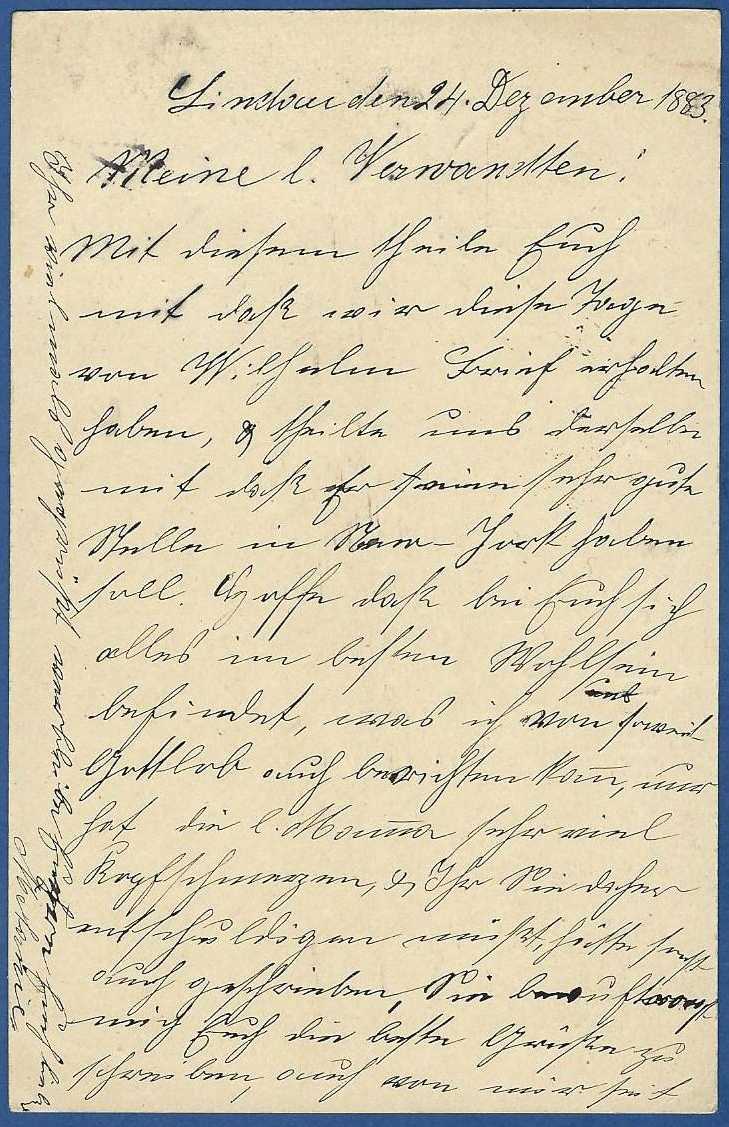 Lindau den 24. Dezember 1883.
Meine l. Verwandten!
Mit diesem theile Euch
mit daß wir diese Tage
von Wilhelm Brief erhalten
haben, & theilte uns derselbe
mit daß Er seine sehr gute
Stelle in New-York haben
soll. Hoffe daß bei Euch sich
alles im besten Wohlsein
befindet, was ich von soweit
Gottlob auch berichten kann, nur
hat die l. Mama sehr viel
Kopfschmerzen, & Ihr Sie daher
entschuldigen müßt, hätte sonst
auch geschrieben, Sie beauftragt
mich Euch die beste Grüße zu
schreiben, auch von mir seit
Ihr vielmals gegrüßt